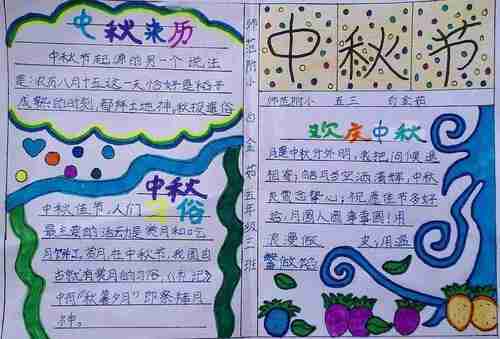 中秋来历
中秋节起源的另一个说法
是:农历八月十五这一天恰好是稻子
成熟的时刻,都拜土地神,秋报遗俗
中秋
习俗
中秋佳节,人们
最主要的活动是赏月和吃
月饼了。赏月,在中秋节,我国自
古就有赏月的习俗,《礼记》
中有"秋暮夕月"即祭拜月
神。
师范附小 白金茹 五年级三班
中秋节
师范附小 五三 白金茹
欢庆中秋
月是中秋分外明,我把问候遥
相寄;皓月当空洒清辉,中秋
良宵念挚心;祝愿佳节多好
给,月圆人圆事事圆!用
浪漫做 史,用温
馨做